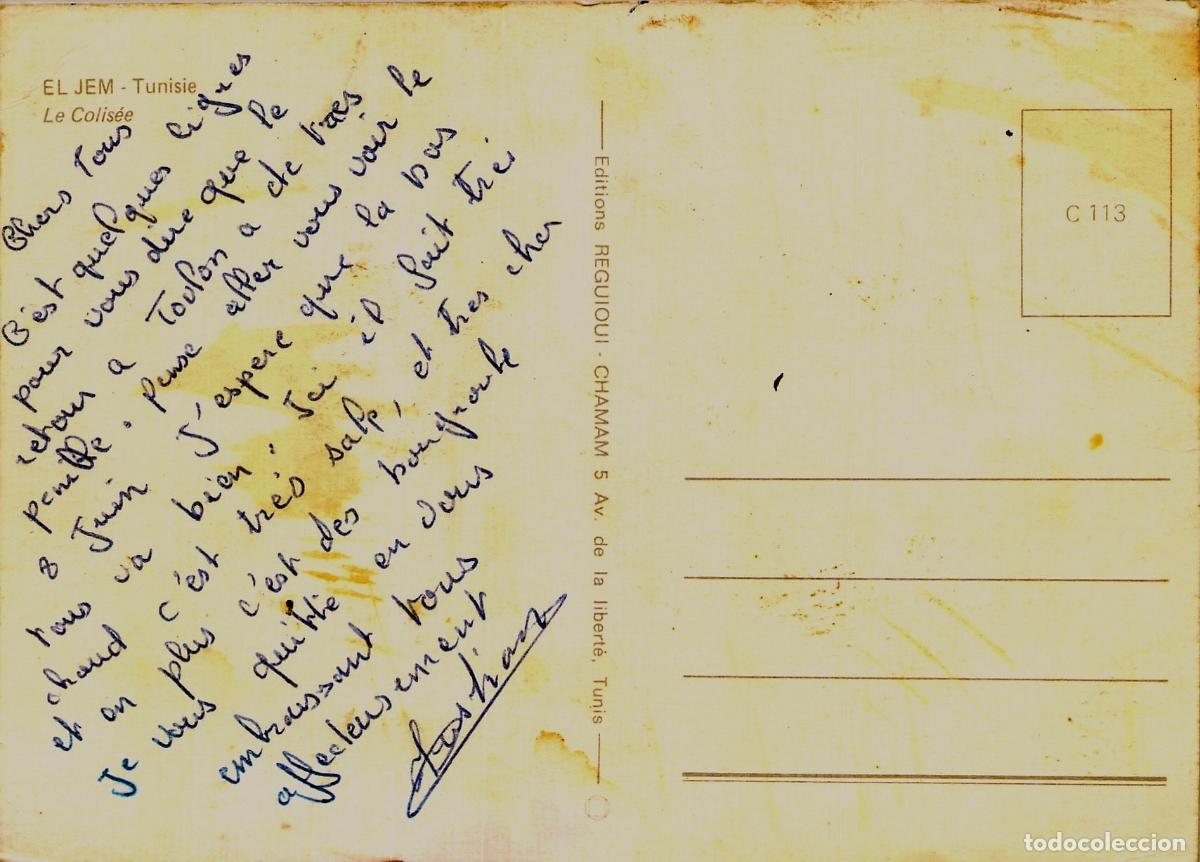 EL JEM - Tunisie
Le Colisée
Chers Tous
C'est quelques lignes
pour vous dire que le
retour a Toulon a ete tres
penible. Pense aller vous voir le
8 Juin J'espere que la bas
tous va bien. Ici il fait trés
chaud c'est trés sale, et tres cher
et en plus c'est des bougnoule
Je vous quitte en vous
embrassant tous
affectueusement
Editions REGUIOUI - CHAMAM 5 Av. de la liberté, Tunis
C 113
todocoleccion